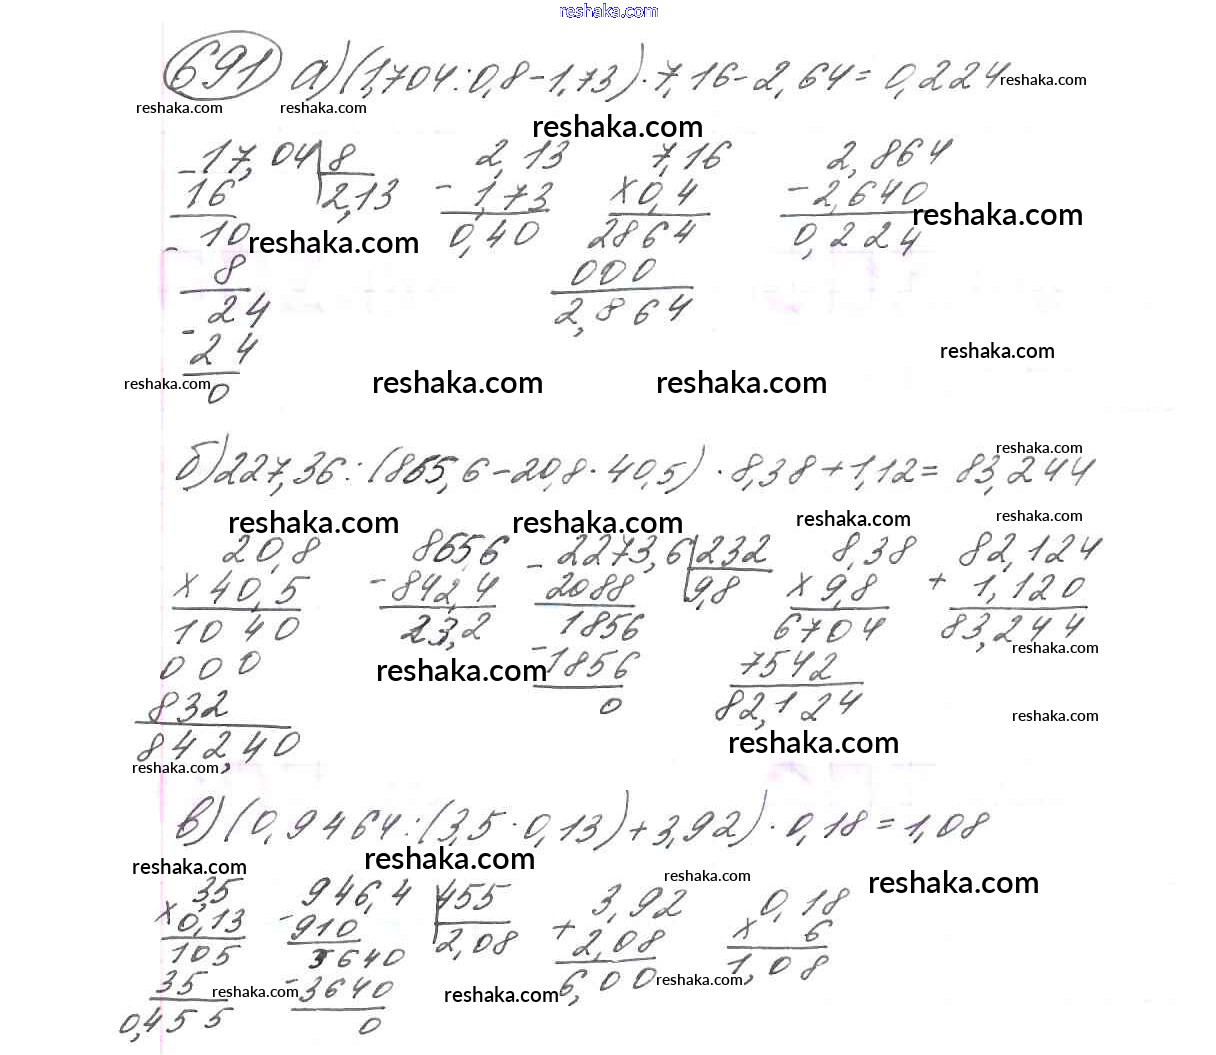 reshaka.com
691 а) (1,704 : 0,8 - 1,73) · 7,16 - 2,64 = 0,224
reshaka.com
reshaka.com reshaka.com
reshaka.com
- 17,04 | 8
16 | 2,13
- 10
8
- 24
24
0
2,13
- 1,73
0,40
7,16
× 0,4
2864
000
2,864
2,864
- 2,640
0,224
reshaka.com reshaka.com
reshaka.com
reshaka.com reshaka.com reshaka.com
reshaka.com
б) 227,36 : (865,6 - 20,8 · 40,5) · 8,38 + 1,12 = 83,244
reshaka.com reshaka.com reshaka.com reshaka.com
20,8
× 40,5
1040
000
832
842,40
8656
- 842,4
23,2
- 2273,6 | 232
2088 | 9,8
1856
- 1856
0
8,38
× 9,8
6704
7542
82,124
82,124
+ 1,120
83,244
reshaka.com
reshaka.com
reshaka.com
reshaka.com
reshaka.com
в) (0,9464 : (3,5 · 0,13) + 3,92) · 0,18 = 1,08
reshaka.com reshaka.com reshaka.com reshaka.com
3,5
× 0,13
105
35
0,455
946,4 | 455
- 910 | 2,08
3640
- 3640
0
3,92
+ 2,08
6,00
0,18
× 6
1,08
reshaka.com reshaka.com reshaka.com